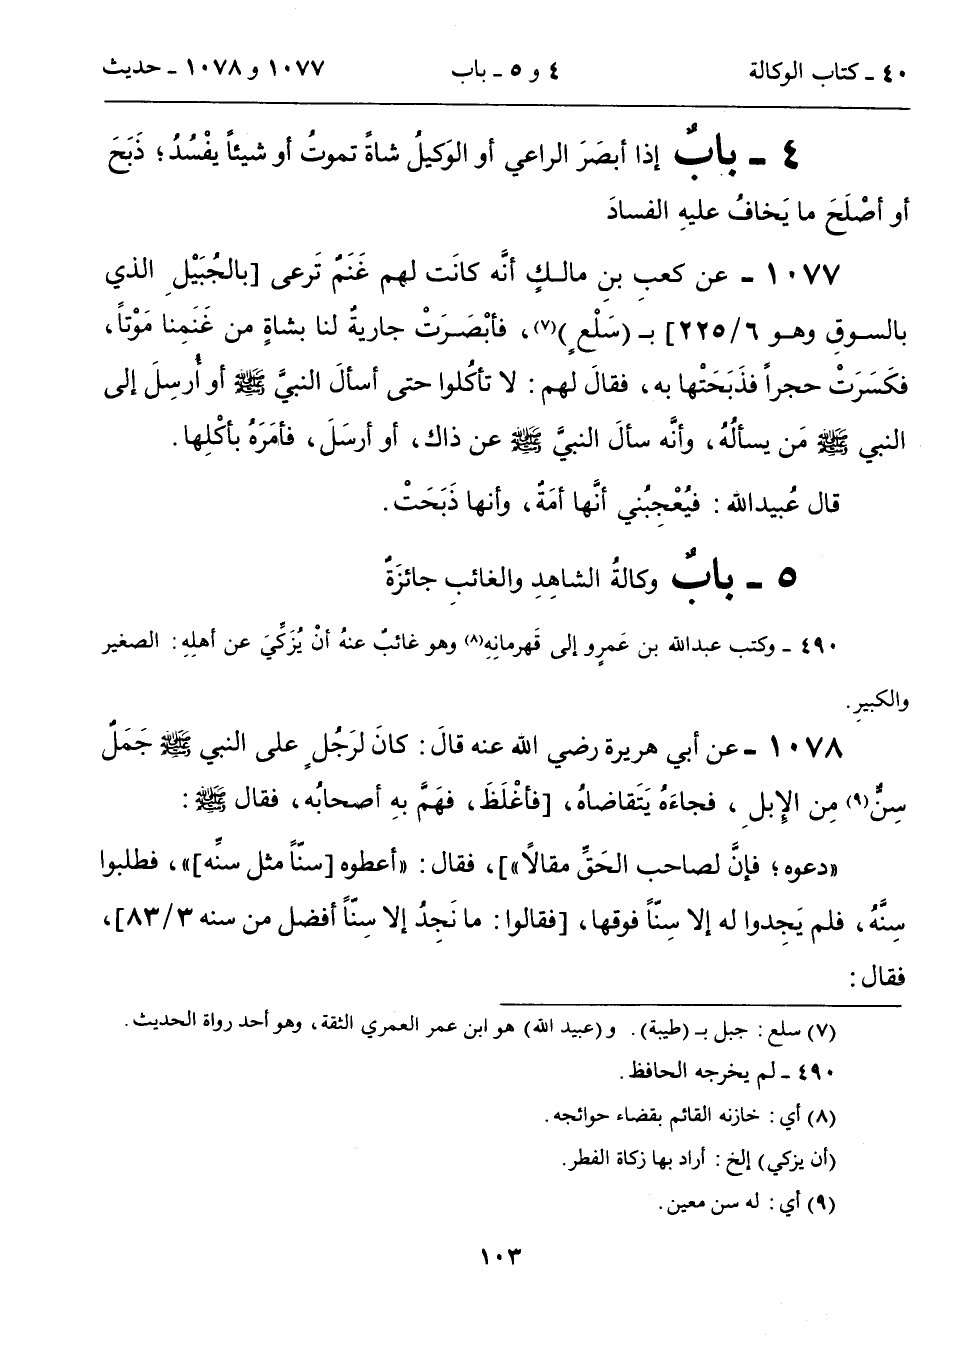 ٤٠ ـ كتاب الوكالة
٤ و ٥ ـ باب
١٠٧٧ و ١٠٧٨ ـ حديث
٤ ـ بابٌ إذا أبصَرَ الراعي أو الوَكيلُ شاةً تموتُ أو شيئاً يفْسُدُ؛ ذَبَحَ
أو أصْلَحَ ما يَخافُ عليهِ الفسادَ
١٠٧٧ ـ عن كعبِ بنِ مالكٍ أنَّه كانَت لهم غَنَمٌ تَرعى [بالجُبَيْلِ الذي
بالسوقِ وهو ٦/٢٢٥] بـ (سَلْعٍ)(٧)، فأبْصَرَتْ جاريةٌ لنا بشاةٍ من غَنَمِنا مَوْتاً،
فكَسَرَتْ حجراً فذَبَحَتْها به، فقالَ لهم: لا تأكُلوا حتى أسألَ النبيَّ ﷺ أو أُرسِلَ إلى
النبي ﷺ مَن يسألُهُ، وأنَّه سألَ النبيَّ ﷺ عن ذاك، أو أرسَلَ، فأمَرَهُ بأكْلِها.
قال عُبيدالله: فيُعْجِبُني أنَّها أمَةٌ، وأنها ذَبَحَتْ.
٥ ـ بابٌ وكالةُ الشاهِدِ والغائبِ جائزَةٌ
٤٩٠ ـ وكتب عبدالله بن عَمرٍو إلى قَهرمانِهِ(٨) وهو غائبٌ عنهُ أنْ يُزَكِّيَ عن أهلِهِ: الصغير
والكبيرِ.
١٠٧٨ ـ عن أبي هريرة رضي الله عنه قالَ: كانَ لرَجُلٍ على النبي ﷺ جَمَلٌ
سِنٌّ(٩) مِن الإِبلِ، فجاءَهُ يَتَقاضاهُ، [فأغْلَظَ، فهَمَّ بهِ أصحابُه، فقال ﷺ:
«دعوه؛ فإنَّ لصاحب الحَقِّ مقالاً»]، فقال: «أعطوه [سنّاً مثل سنِّه]»، فطلبوا
سِنَّهُ، فلم يَجِدوا له إلا سِنّاً فوقها، [فقالوا: ما نَجِدُ إلا سِنّاً أفضل من سنه ٣/٨٣]،
فقال:
(٧) سلع: جبل بـ (طيبة). و(عبيد الله) هو ابن عمر العمري الثقة، وهو أحد رواة الحديث.
٤٩٠ ـ لم يخرجه الحافظ.
(٨) أي: خازنه القائم بقضاء حوائجه.
(أن يزكي) إلخ: أراد بها زكاة الفطر.
(٩) أي: له سن معين.
١٠٣